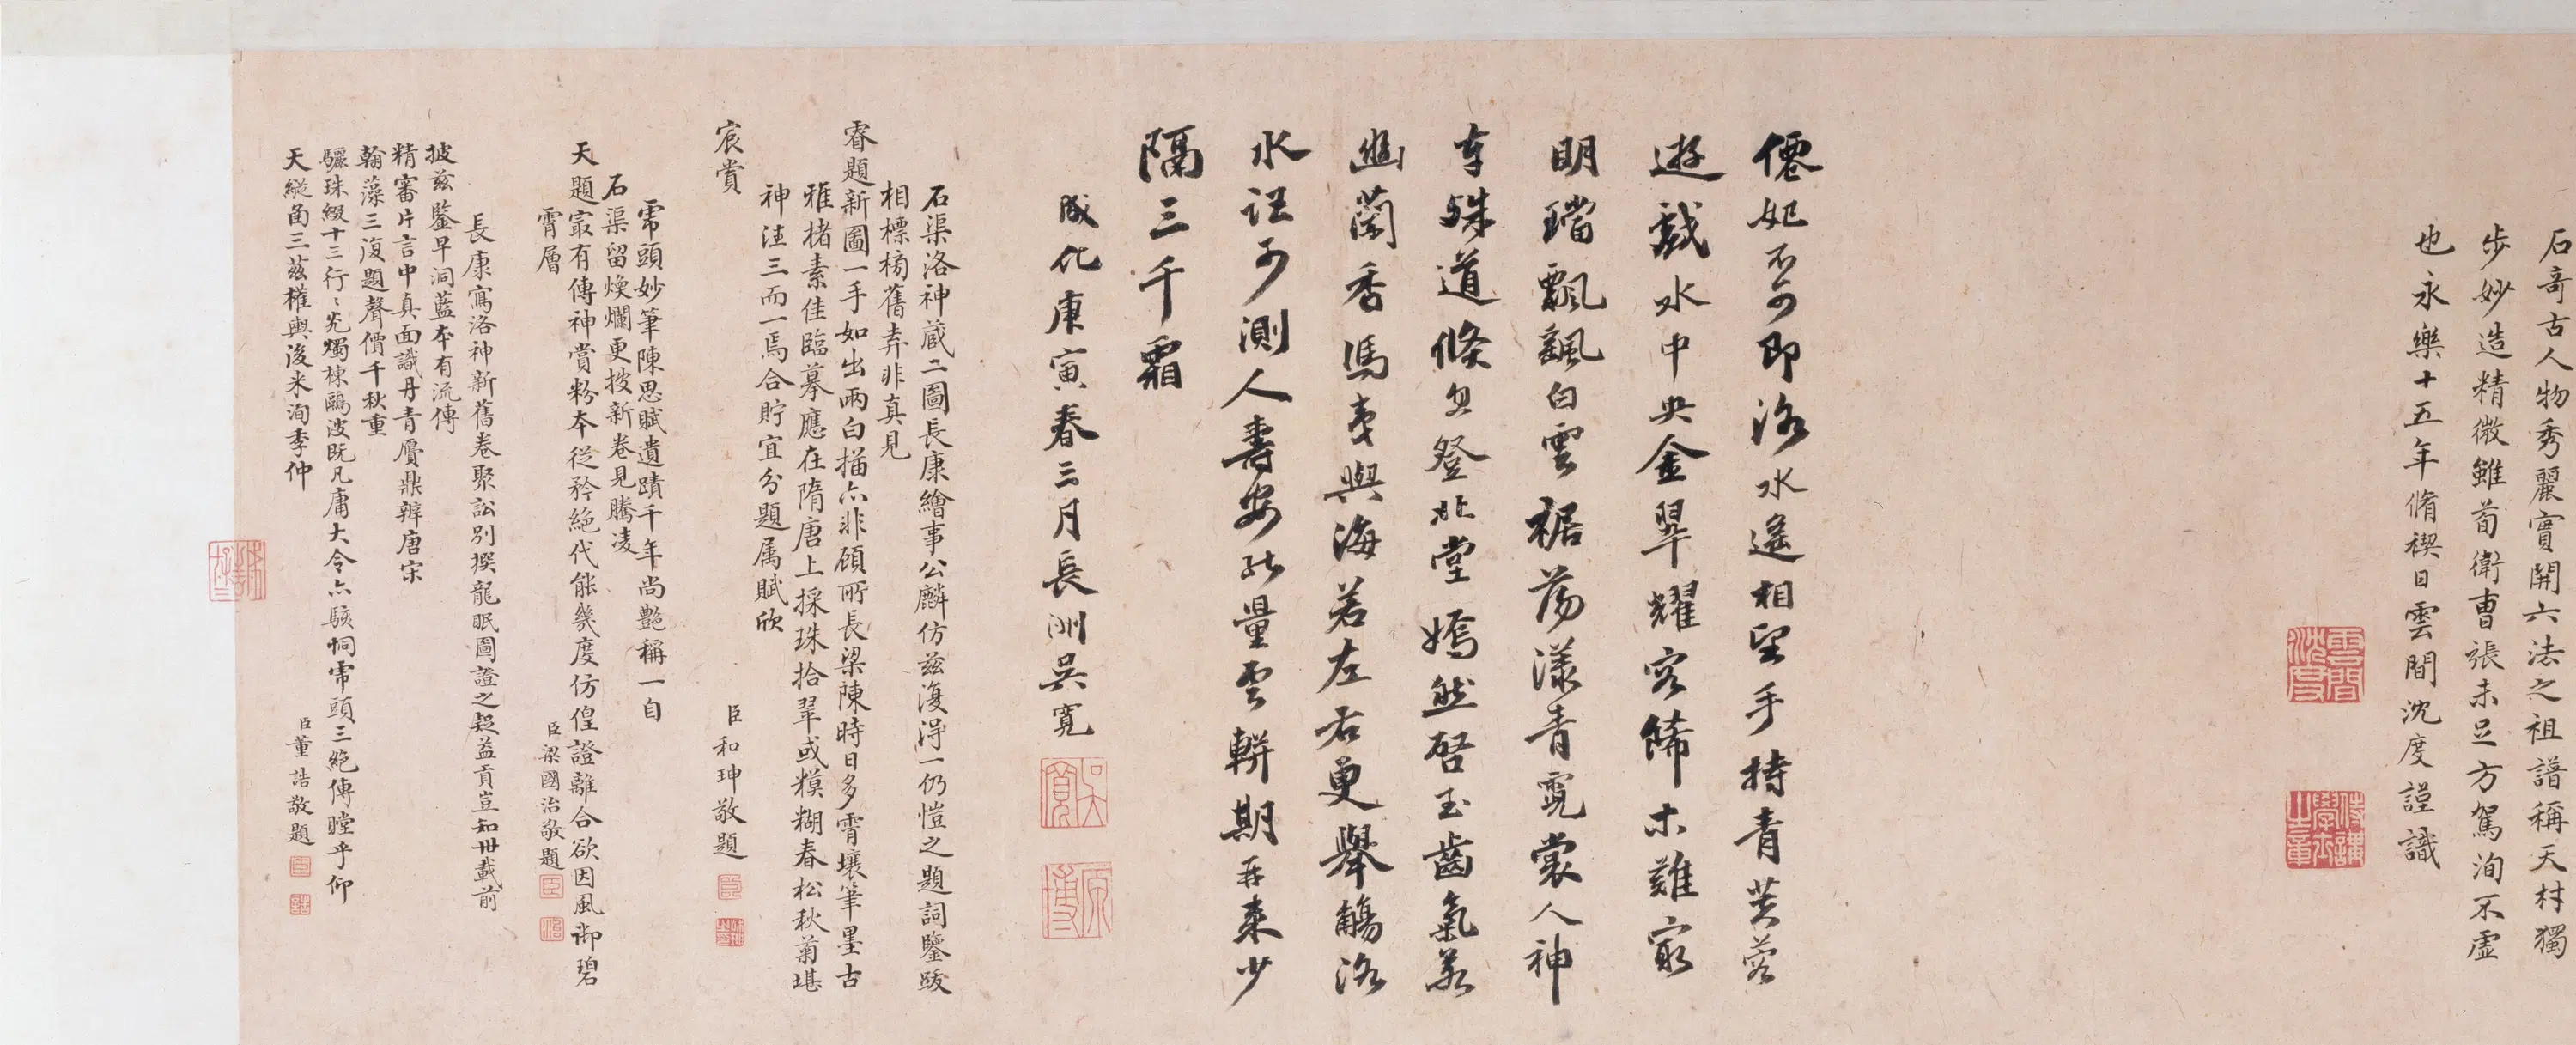 石奇古人物秀麗實開六法之祖譜稱天材獨
步妙造精微雖荀衛曹張未足方駕洵不虛
也永樂十五年脩禊日雲間沈度謹識
雲間沈度
侍講學士之章
僊妃不可即洛水遙相望手持青芙蓉
遊戲水中央金翠耀容飾木難寂
明璫飄飄白雲裾蕩漾青霓裳人神
有殊道倏忽登北堂嫣然啓玉齒氣若
幽蘭香馮夷與海若左右更舉觴洛
水詎可測人壽安能量雲軿期再來少
隔三千霜
成化庚寅春三月長洲吳寬
吳寬
原博
石渠洛神蔵二圖長康繪事公麟仿兹復得一仍愷之題詞鑒跋
相標榜舊弆非真見
睿題新圖一手如出兩白描亦非顧所長梁陳時日多霄壤筆墨古
雅楮素佳臨摹應在隋唐上採珠拾翠或糢糊春松秋菊堪
神注三而一焉合貯宜分題属賦欣
宸賞
臣和珅敬題
帬頭妙筆陳思賦遺蹟千年尚艷稱一自
石渠留煥爛更披新卷見騰凌
天題㝡有傳神賞粉本從矜絕代能幾度仿偟證離合欲因風御碧
霄層
臣梁國治敬題
長康寫洛神新舊卷聚訟別撰龍眠圖證之疑益貢豈知卅載前
披兹鑒早洞藍本有流傳
精審片言中真面識丹青贗鼎辨唐宋
翰藻三復題聲價千秋重
驪珠綴十三行行光燭棟鷗波既凡庸大令亦駭恫帬頭三絕傳瞠乎仰
天縱函三茲權輿後来洵季仲
臣董誥敬題
臣
誥